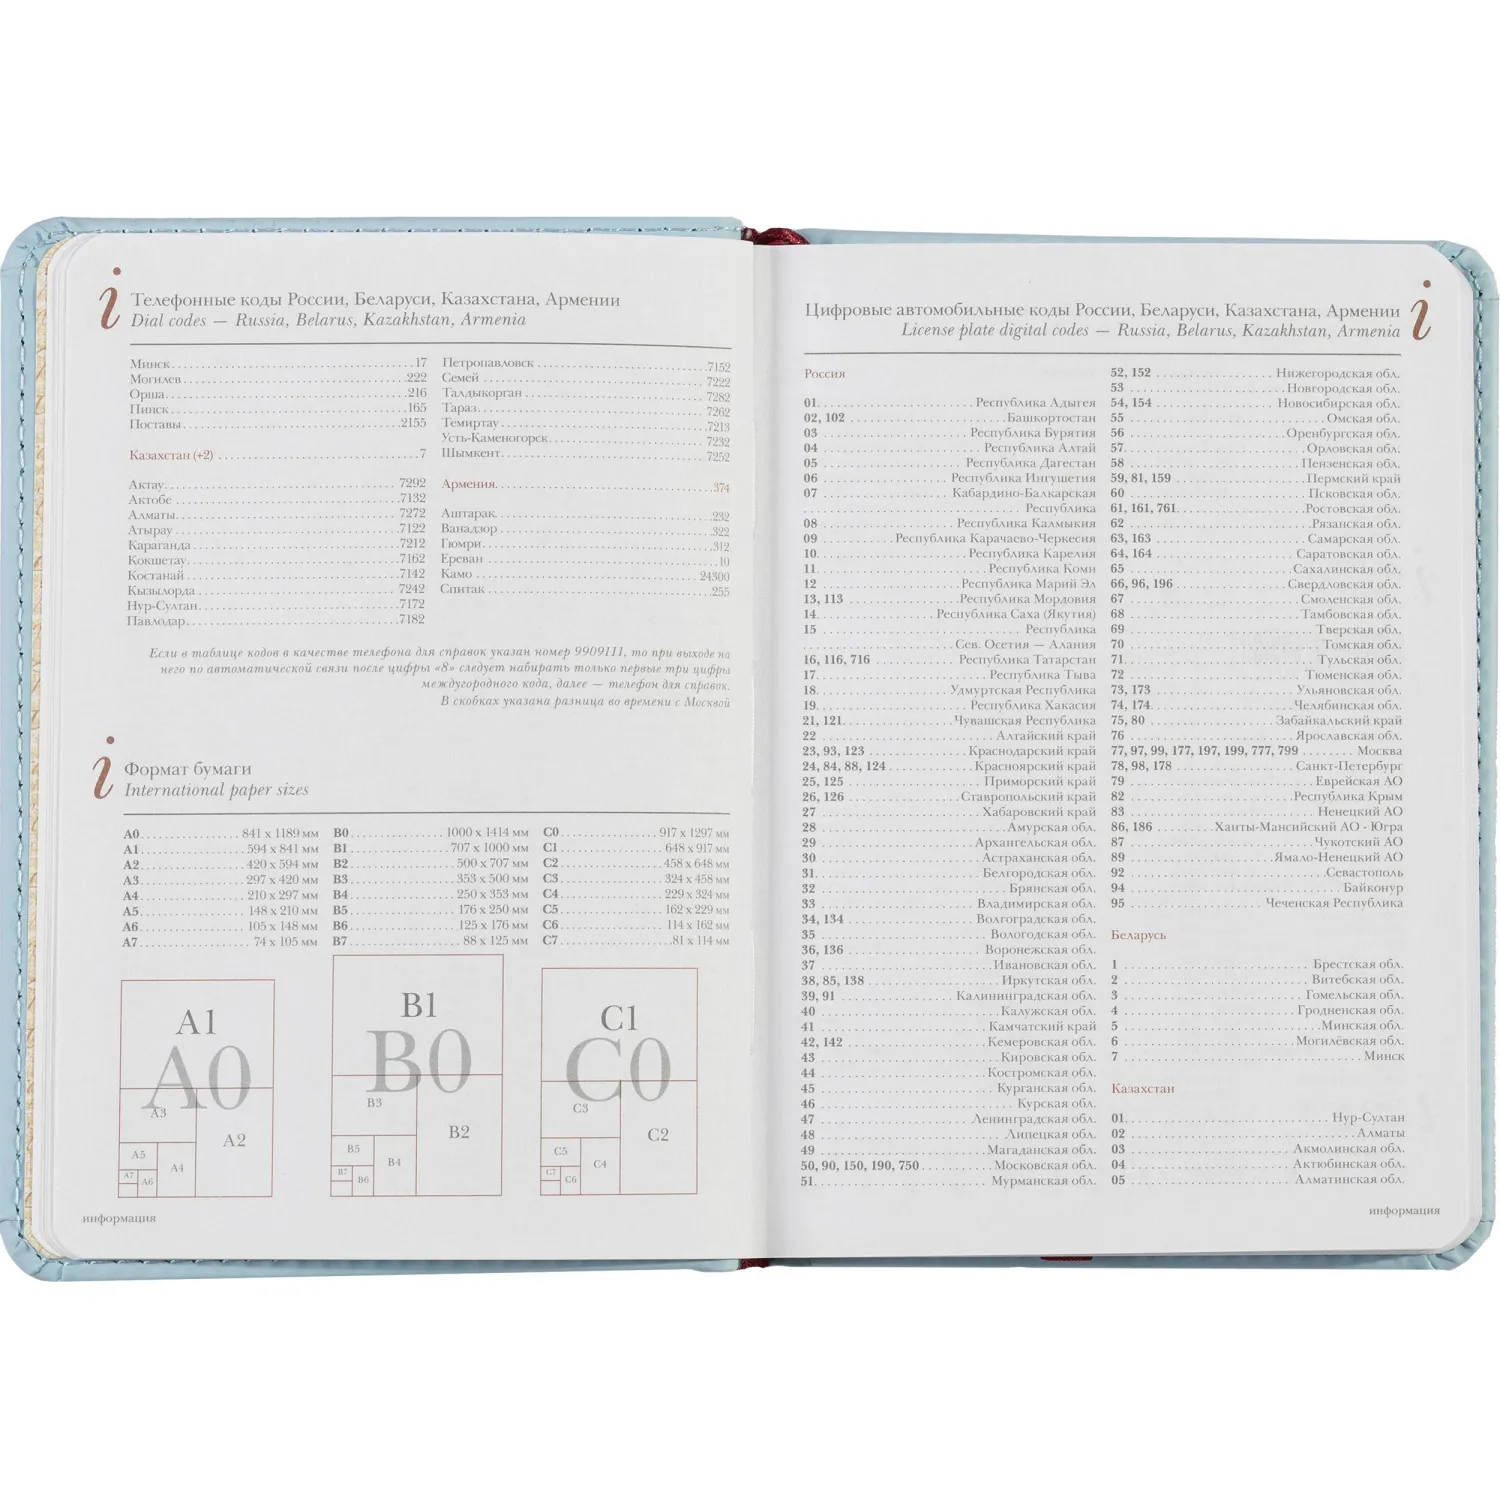 i
Телефонные коды России, Беларуси, Казахстана, Армении
Dial codes — Russia, Belarus, Kazakhstan, Armenia
Минск 17
Могилев 222
Орша 216
Пинск 165
Поставы 2155
Казахстан (+2) 7
Актау 7292
Актобе 7132
Алматы 7272
Атырау 7122
Караганда 7212
Кокшетау 7162
Костанай 7142
Кызылорда 7242
Нур-Султан 7172
Павлодар 7182
Петропавловск 7152
Семей 7222
Талдыкорган 7282
Тараз 7262
Темиртау 7213
Усть-Каменогорск 7232
Шымкент 7252
Армения 374
Аштарак 232
Ванадзор 322
Гюмри 312
Ереван 10
Камо 24300
Спитак 255
Если в таблице кодов в качестве телефона для справок указан номер 9909111, то при выходе на
него по автоматической связи после цифры «8» следует набирать только первые три цифры
междугородного кода, далее — телефон для справок.
В скобках указана разница во времени с Москвой
i
Формат бумаги
International paper sizes
A0 841 x 1189 мм
A1 594 x 841 мм
A2 420 x 594 мм
A3 297 x 420 мм
A4 210 x 297 мм
A5 148 x 210 мм
A6 105 x 148 мм
A7 74 x 105 мм
B0 1000 x 1414 мм
B1 707 x 1000 мм
B2 500 x 707 мм
B3 353 x 500 мм
B4 250 x 353 мм
B5 176 x 250 мм
B6 125 x 176 мм
B7 88 x 125 мм
C0 917 x 1297 мм
C1 648 x 917 мм
C2 458 x 648 мм
C3 324 x 458 мм
C4 229 x 324 мм
C5 162 x 229 мм
C6 114 x 162 мм
C7 81 x 114 мм
A1
A0
A3
A2
A5
A4
A7
A6
B1
B0
B3
B2
B5
B4
B7
B6
C1
C0
C3
C2
C5
C4
C7
C6
информация
i
Цифровые автомобильные коды России, Беларуси, Казахстана, Армении
License plate digital codes — Russia, Belarus, Kazakhstan, Armenia
Россия
01 Республика Адыгея
02, 102 Башкортостан
03 Республика Бурятия
04 Республика Алтай
05 Республика Дагестан
06 Республика Ингушетия
07 Кабардино-Балкарская
Республика
08 Республика Калмыкия
09 Республика Карачаево-Черкесия
10 Республика Карелия
11 Республика Коми
12 Республика Марий Эл
13, 113 Республика Мордовия
14 Республика Саха (Якутия)
15 Республика
Сев. Осетия — Алания
16, 116, 716 Республика Татарстан
17 Республика Тыва
18 Удмуртская Республика
19 Республика Хакасия
21, 121 Чувашская Республика
22 Алтайский край
23, 93, 123 Краснодарский край
24, 84, 88, 124 Красноярский край
25, 125 Приморский край
26, 126 Ставропольский край
27 Хабаровский край
28 Амурская обл.
29 Архангельская обл.
30 Астраханская обл.
31 Белгородская обл.
32 Брянская обл.
33 Владимирская обл.
34, 134 Волгоградская обл.
35 Вологодская обл.
36, 136 Воронежская обл.
37 Ивановская обл.
38, 85, 138 Иркутская обл.
39, 91 Калининградская обл.
40 Калужская обл.
41 Камчатский край
42, 142 Кемеровская обл.
43 Кировская обл.
44 Костромская обл.
45 Курганская обл.
46 Курская обл.
47 Ленинградская обл.
48 Липецкая обл.
49 Магаданская обл.
50, 90, 150, 190, 750 Московская обл.
51 Мурманская обл.
52, 152 Нижегородская обл.
53 Новгородская обл.
54, 154 Новосибирская обл.
55 Омская обл.
56 Оренбургская обл.
57 Орловская обл.
58 Пензенская обл.
59, 81, 159 Пермский край
60 Псковская обл.
61, 161, 761 Ростовская обл.
62 Рязанская обл.
63, 163 Самарская обл.
64, 164 Саратовская обл.
65 Сахалинская обл.
66, 96, 196 Свердловская обл.
67 Смоленская обл.
68 Тамбовская обл.
69 Тверская обл.
70 Томская обл.
71 Тульская обл.
72 Тюменская обл.
73, 173 Ульяновская обл.
74, 174 Челябинская обл.
75, 80 Забайкальский край
76 Ярославская обл.
77, 97, 99, 177, 197, 199, 777, 799 Москва
78, 98, 178 Санкт-Петербург
79 Еврейская АО
82 Республика Крым
83 Ненецкий АО
86, 186 Ханты-Мансийский АО - Югра
87 Чукотский АО
89 Ямало-Ненецкий АО
92 Севастополь
94 Байконур
95 Чеченская Республика
Беларусь
1 Брестская обл.
2 Витебская обл.
3 Гомельская обл.
4 Гродненская обл.
5 Минская обл.
6 Могилёвская обл.
7 Минск
Казахстан
01 Нур-Султан
02 Алматы
03 Акмолинская обл.
04 Актюбинская обл.
05 Алматинская обл.
информация